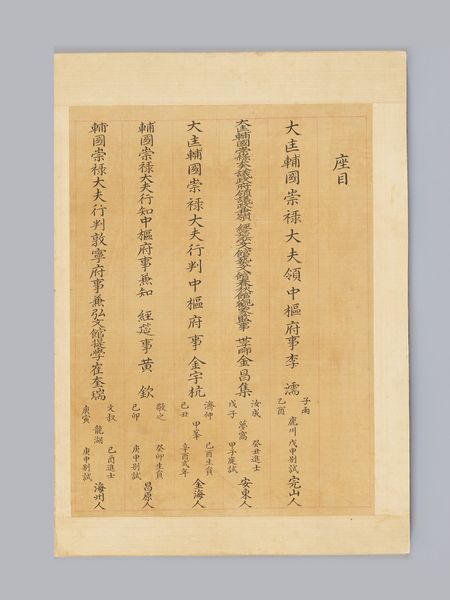 座目
大匡輔國崇祿大夫領中樞府事李濡 子雨 乙酉 鹿川 戊申別試 完山人
大匡輔國崇祿大夫議政府領議政兼領 經筵弘文館藝文館春秋館觀象監事 世子師金昌集 汝成 戊子 夢窩 癸丑進士 甲子庭試 安東人
大匡輔國崇祿大夫行判中樞府事金宇杭 濟仲 己丑 甲峯 己酉生員 辛酉式年 金海人
輔國崇祿大夫行知中樞府事兼知 經筵事黃欽 敬之 己卯 癸卯生員 庚申別試 昌原人
輔國崇祿大夫行判敦寧府事兼弘文館提學崔奎瑞 文叔 庚寅 龍湖 己酉進士 庚申別試 海州人